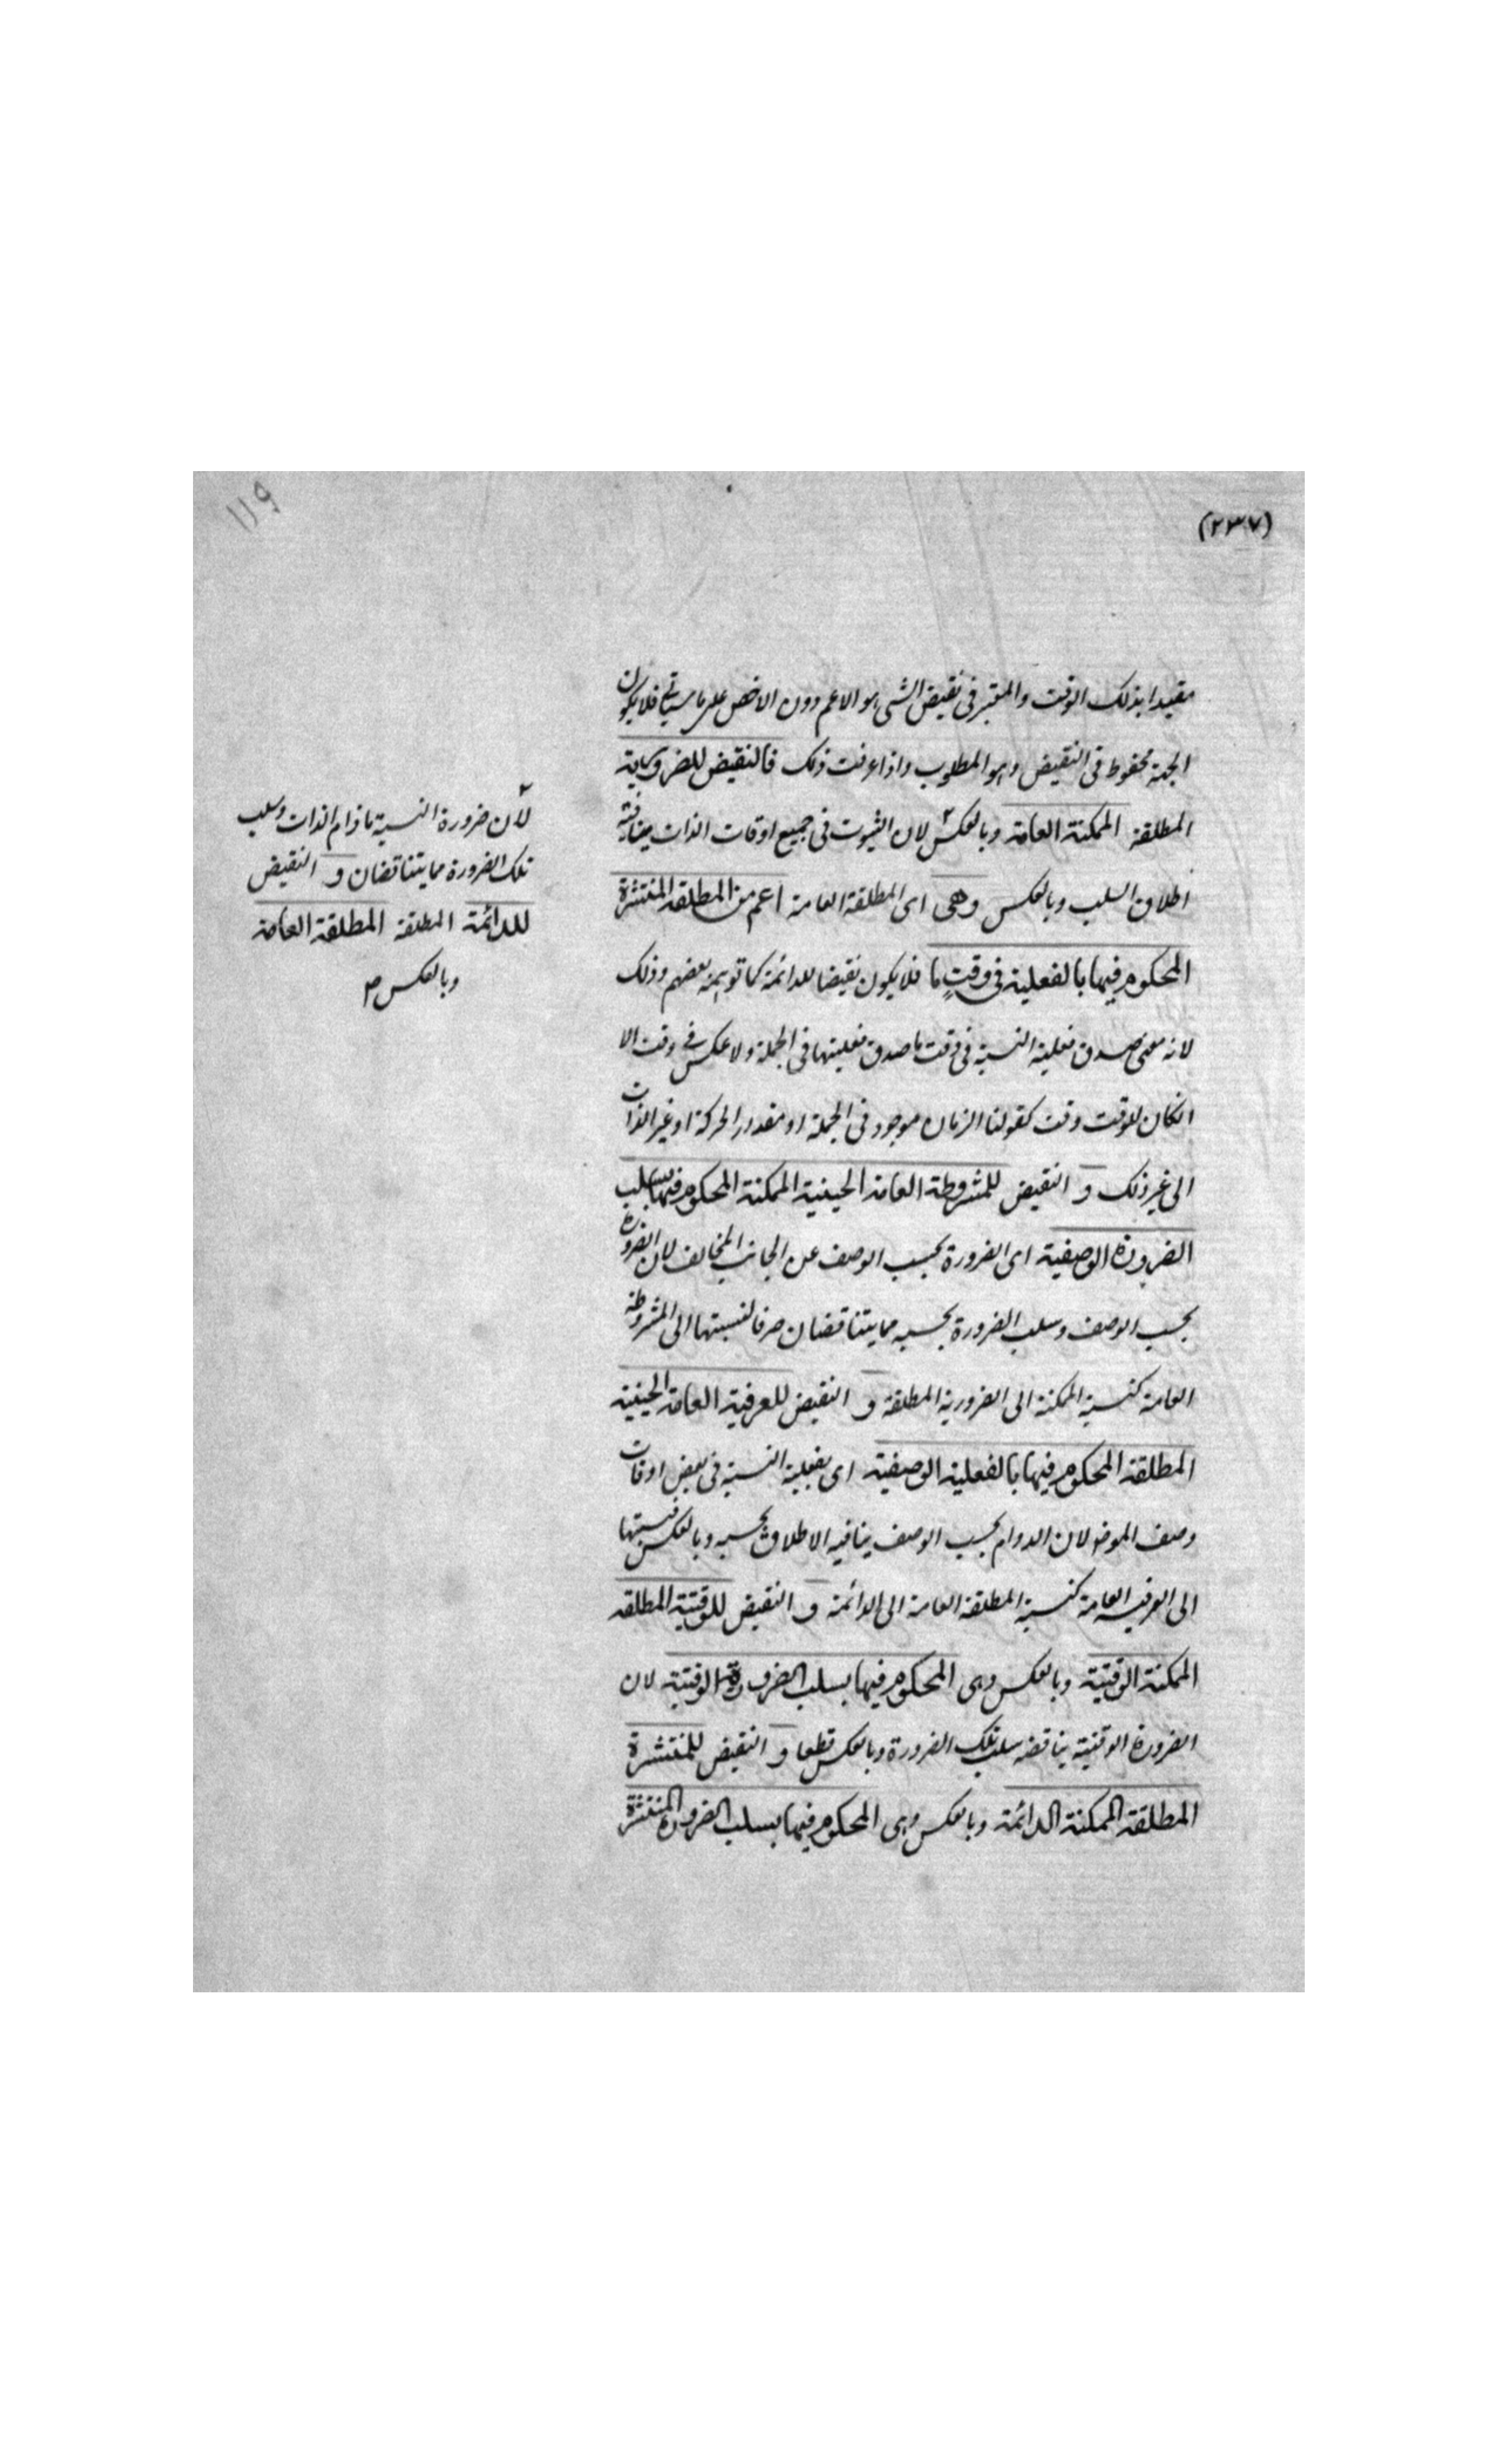 (٢٣٧)
١١٩
مقيدا بذلك الوقت والمعتبر فى نقيض الشى هو الاعم دون الاخص على ما سياتى فلا يكون
الجهة محفوظ فى النقيض وهو المطلوب واذا عرفت ذلك فالنقيض للضرورية
المطلقة الممكنة العامة وبالعكس لان الثبوت فى جميع اوقات الذات ينافيه
اطلاق السلب وبالعكس وهى اى المطلقة العامة اعم من المطلقة المنتشرة
المحكوم فيها بالفعلية فى وقتٍ ما فلا يكون نقيضا للدائمة كما توهمه بعضهم وذلك
لانه معنى صدق فعلية النسبة فى وقت ما صدق فعليتها فى الجملة ولا عكس فى وقت الا
الكان للوقت وقت كقولنا الزمان موجود فى الجملة او مقدار الحركة او غير الذات
الى غير ذلك و النقيض للمشروطة العامة الحينية الممكنة المحكوم فيها بسلب
الضرورة الوصفية اى الضرورة بحسب الوصف عن الجانب المخالف لان الضرورة
بحسب الوصف وسلب الضرورة بحسبه مما يتناقضان صرفا لنسبتها الى المشروطة
العامة كنسبة الممكنة الى الضرورية المطلقة و النقيض للعرفية العامة الحينية
المطلقة المحكوم فيها بالفعلية الوصفية اى بفعلية النسبة فى بعض اوقات
وصف الموضو لان الدوام بحسب الوصف ينافيه الاطلاق بحسبه وبالعكس فنسبتها
الى العرفية العامة كنسبة المطلقة العامة الى الدائمة و النقيض للوقتية المطلقة
الممكنة الوقتية وبالعكس وهى المحكوم فيها بسلب الضرورة الوقتية لان
الضرورة الوقتية يناقضه سلب تلك الضرورة وبالعكس قطعا و النقيض للمنتشرة
المطلقة الممكنة الدائمة وبالعكس وهى المحكوم فيها بسلب الضرورة المنتشرة
لأن ضرورة النسبة ما دام الذات وسلب
تلك الضرورة مما يتناقضان و النقيض
للدائمة المطلقة المطلقة العامة
وبالعكس